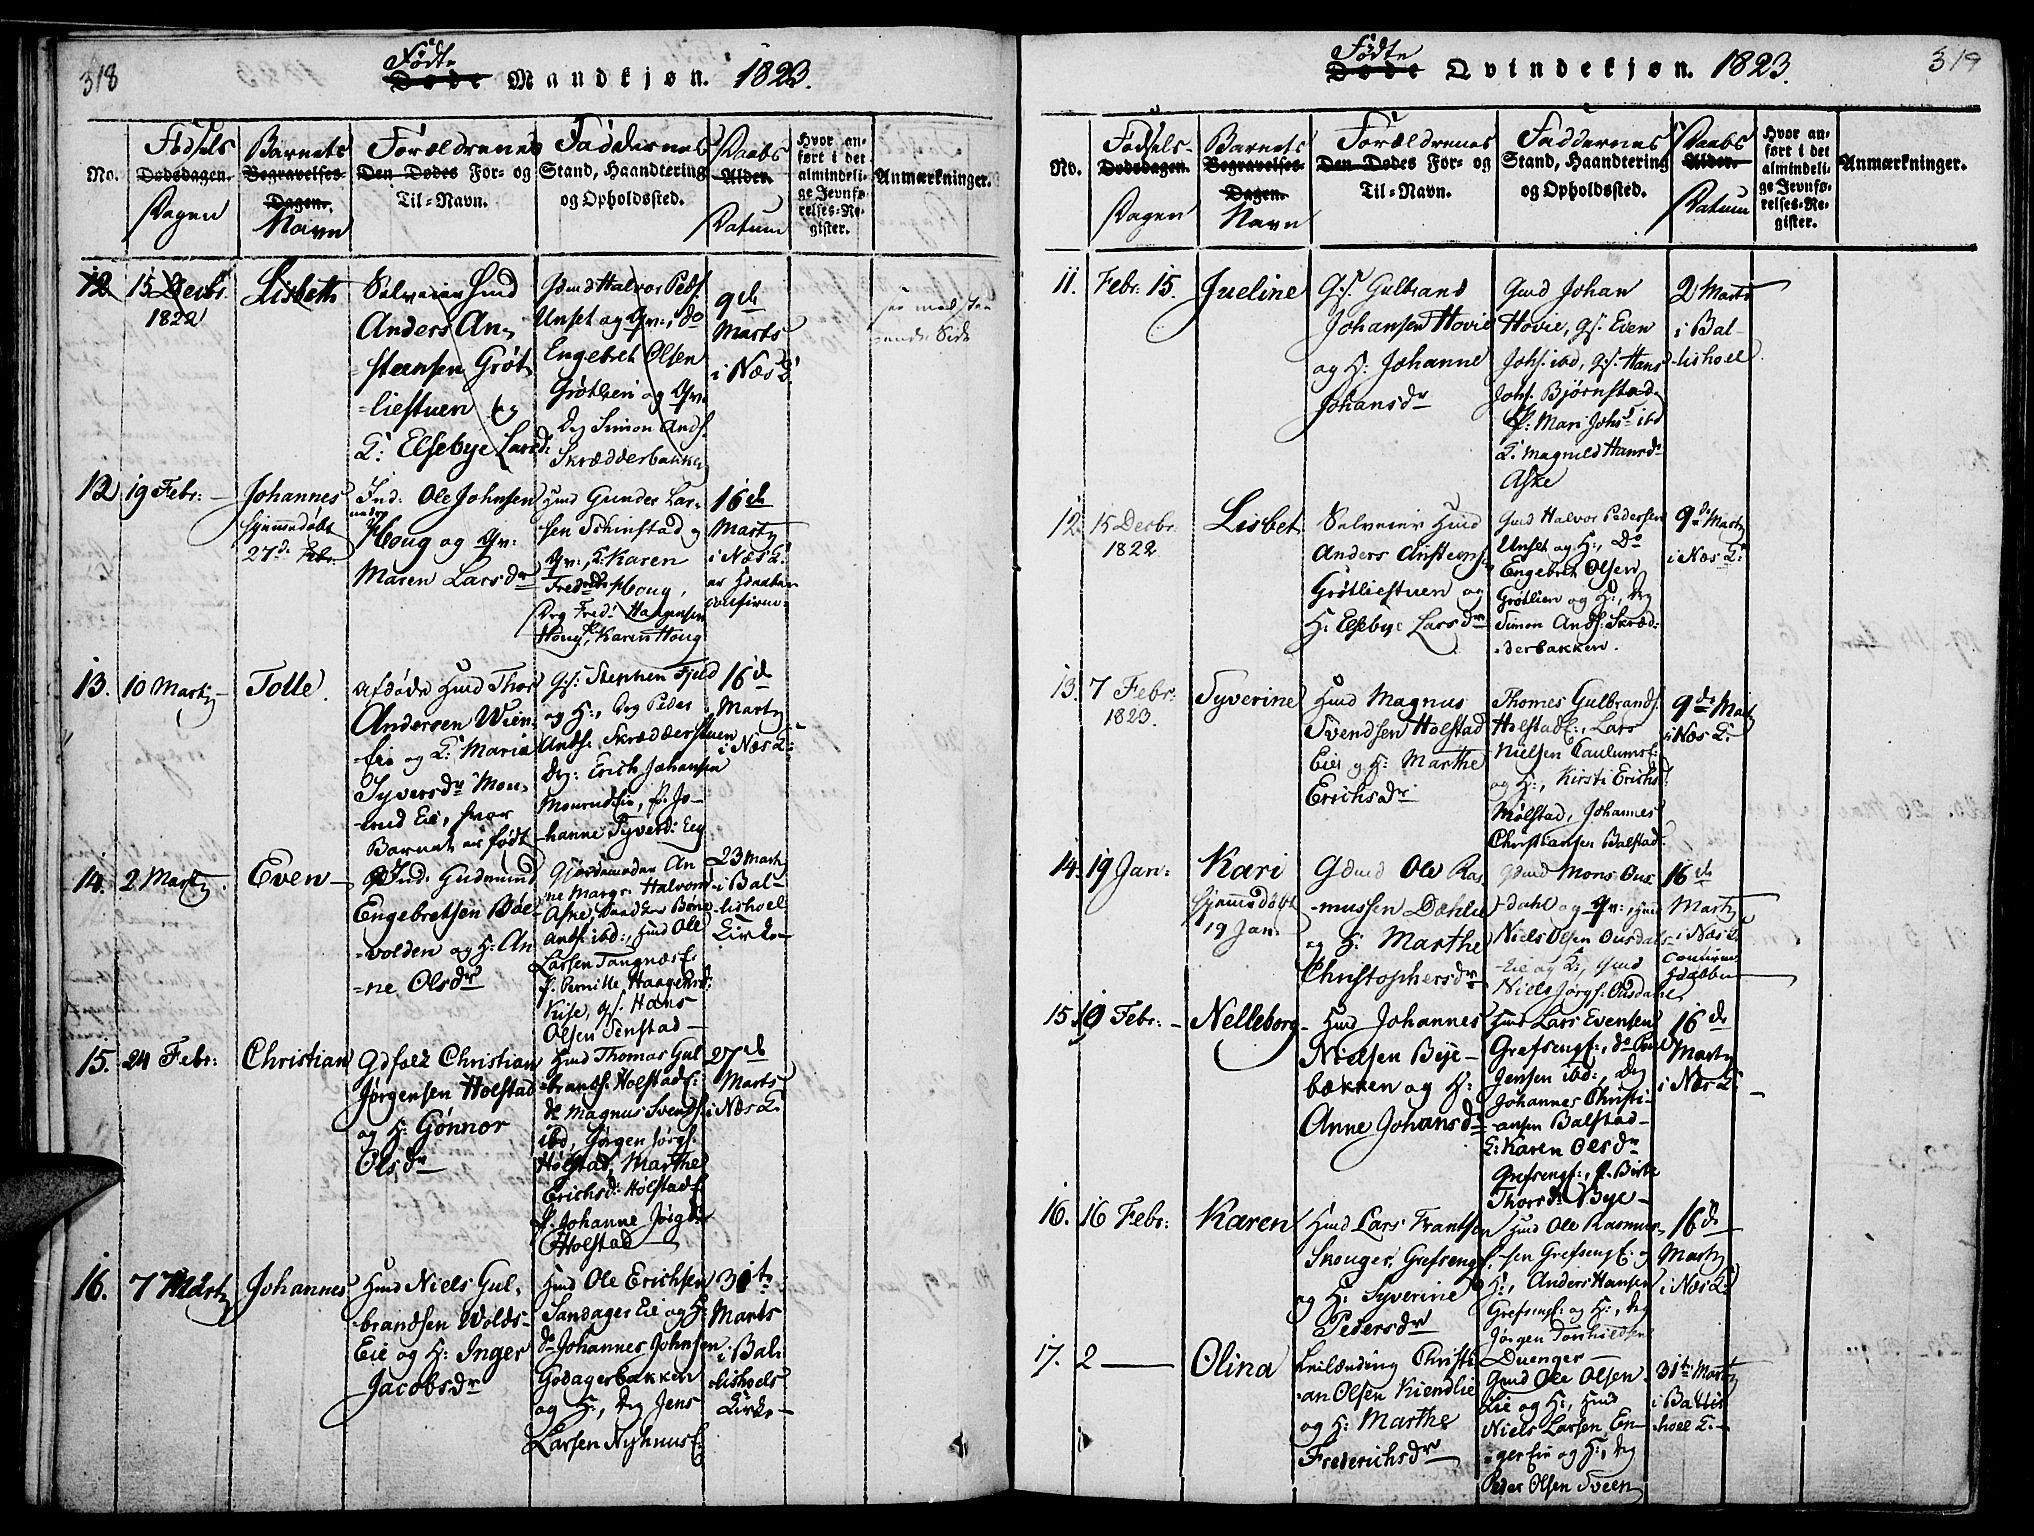 318
Fødte
Døde Mandkjøn. 1823.
No.
Fødsels
Dødsdagen.
Dagen
Barnets
Begravelses-
Dagen.
Navn
Forældrenes
Den Dødes For- og
Til-Navn.
Faddernes
Stand, Haandtering
og Opholdssted.
Daabs
Alder.
Datum
Hvor an-
ført i det
almindeli-
ge Jevnfø-
relses-Re-
gister.
Anmærkninger.
12
15 Decbr.
1822
Lisbeth
Selveier Hmd
Anders An-
steensen Grøt-
liestuen og
K: Elsebye Larsd:
Gdmd Halvor Peds.
Unset og Qv:, do
Engebret Olsen
Grøtlien og Qv:
Dreng Simon Ands.
Skrædderbakken
9de
Marts
i Næs K:
see modstaa-
ende Side
12
19 Febr:
Johannes
hjemmedøbt
27de Febr.
Ind: Ole Johnsen
Houg og Qv:
Maren Larsdr
Hmd Gunder Lar-
sen Schinstad og
Qv:, K. Karen
Fredrs Houg,
Dreng Fred: Haagensen
Houg, P. Karen Houg
16de
Martz
i Næs K:
er Daaben
confirm:
13.
10 Martz
Tolle.
Afdøde Hmd Thor
Andersen Wien-
Eie og K: Maria
Syversdr Mon-
rud Eie, hvor
Barnet er født
Gs: Stephen Fjeld
og H:, Dreng Peder
Ands. Skrædderstuen
Dreng: Erich Johansen
Monrudeie, P: Jo-
hanne Syversd: Eie
16de
Martz
i Næs K:
14.
2 Martz
Even
Ind: Gudmund
Engebretsen Bøe-
volden og H: An-
ne Olsdr
Gjordemoder An-
ne Margr: Halvors
Aske, Bone
Ands. ibd:, Hmd Ole
Larsen Tangnæs E:
P. Pernille Haagensd:
Kise, Gs. Hans
Olsen Tenstad
23 Martz
i Bal-
lishoel
Kirke
15.
24 Febr:
Christian
Gdfolk Christian
Jørgensen Holstad
og H: Gønnor
Olsdr
Hmd Thomas Gul-
brands. Holstad E:
do Magnus Svends.
ibd, Jørgen Jørgs.
Holstad, Marthe
Erichsd: Holstad E
P. Johanne Jørgdr
Holstad
27de
Marts
i Næs K:
16.
7 Martz
Johannes
Hmd Niels Gul-
brandsen Wolds-
Eie og H: Inger
Jacobsdr
Hmd Ole Erichsen
Sandager Eie og H:
do Johannes Johnsen
Godagerbakken
og H:, Dreng Jens
Larsen Nyhuus E:
31te
Marts
i Bal-
lishoels
Kirke
319
Fødte
Døde Qvindekjøn. 1823.
No.
Fødsels-
Dødsdagen.
Dagen
Barnets
Begravelses-
Dagen.
Navn
Forældrenes
Den Dødes For- og
Til-Navn.
Faddernes
Stand, Haandtering
og Opholdssted.
Daabs
Alder.
Datum
Hvor an-
ført i det
almindeli-
ge Jevnfø-
relses-Re-
gister.
Anmærkninger.
11.
Febr. 15.
Jueline
Gs. Gulbrand
Johansen Hovie
og H: Johanne
Johansdr
Gmd Johan
Hovie, Gs. Even
Johs. ibd, Gs. Hans
Johs. Bjørnstad
P: Mari Johsd ibd
K. Magnild Hansdr
Aske
2 Marts
i Bal-
lishoel
12.
15 Decbr.
1822
Lisbet
Selveier Hmd
Anders Ansteens.
Grøtliestuen og
H: Elsebye Larsdr
Gmd Halvor Pedersen
Unset og H:, Do
Engebret Olsen
Grøtlien og H:, Dreng
Simon Ands. Skræd-
derbakken.
9de Martz
i Næs K:
13.
7 Febr:
1823.
Syverine
Hmd Magnus
Svendsen Holstad
Eie og H: Marthe
Erichsdr
Thomes Gulbrands.
Holstad E:, Lars
Nielsen Caulums E:
og H:, Kirsti Erichsd
Mølstad, Johannes
Christiansen Balstad
9de Martz
i Næs K:
14.
19 Jan:
Kari
hjemmedøbt
19 Jan:
Gdmd Ole Ras-
mussen Dæhlie
og H: Marthe
Christophersdr
Gmd Mons Ous-
dahl og Qv:, Hmd
Niels Olsen Ousdals-
Eie og K:, Gmd
Niels Jørgs. Ousdahl
16de
Martz
i Næs K:
confirm:
Daaben
15
10 Febr:
Nelleborg
Hmd Johannes
Nielsen Bye-
bækken og H:
Anne Johansdr
Hmd Lars Evensen
Grefseng E:, do Poul
Jensen ibd:, Dreng
Johannes Christi-
ansen Balstad
K: Karen Olsdr
Grefseng E:, P. Birte
Thorsdr Bye
16de
Martz
i Næs K:
16.
16 Febr:
Karen
Hmd Lars Frantsen
Skouger, Grefseng E.
og H: Syverine
Pedersdr
Hmd Ole Rasmus-
sen Grefseng E: og
H:, Anders Hansen
Grefseng E: og H:, Dreng
Jørgen Torchildsen
Duenger
16de
Martz
i Næs K:
17.
2
Olina
Qvilænding Christi-
an Olsen Kiendlie
og H: Marthe
Frederichsdr
Gmd Ole Olsen
Lie og H:, Hmd
Niels Larsen En-
ger Eie og H:, Dreng
Peder Olsen Sveen
31te Martz
i Ballis-
hoel K: